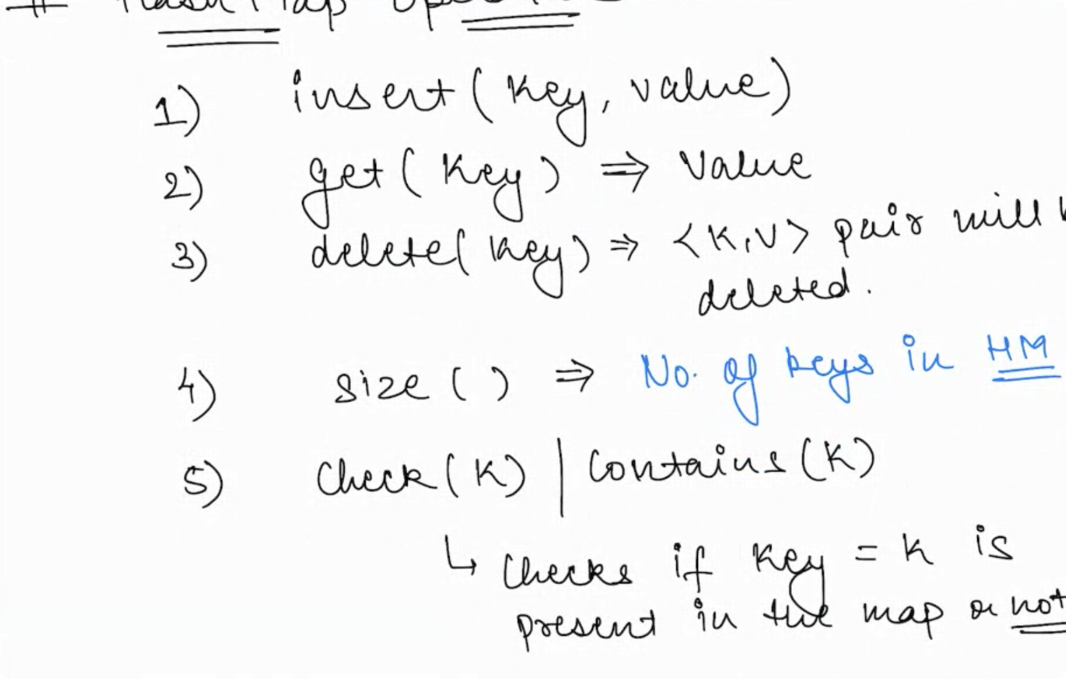 # HashMap Oper
1) insert(Key, value)
2) get(Key) ⇒ Value
3) delete(Key) ⇒ <K,V> pair will
deleted.
4) size() ⇒ No. of keys in HM
5) Check(K) | Contains(K)
↳ Checks if Key = K is
present in the map or not